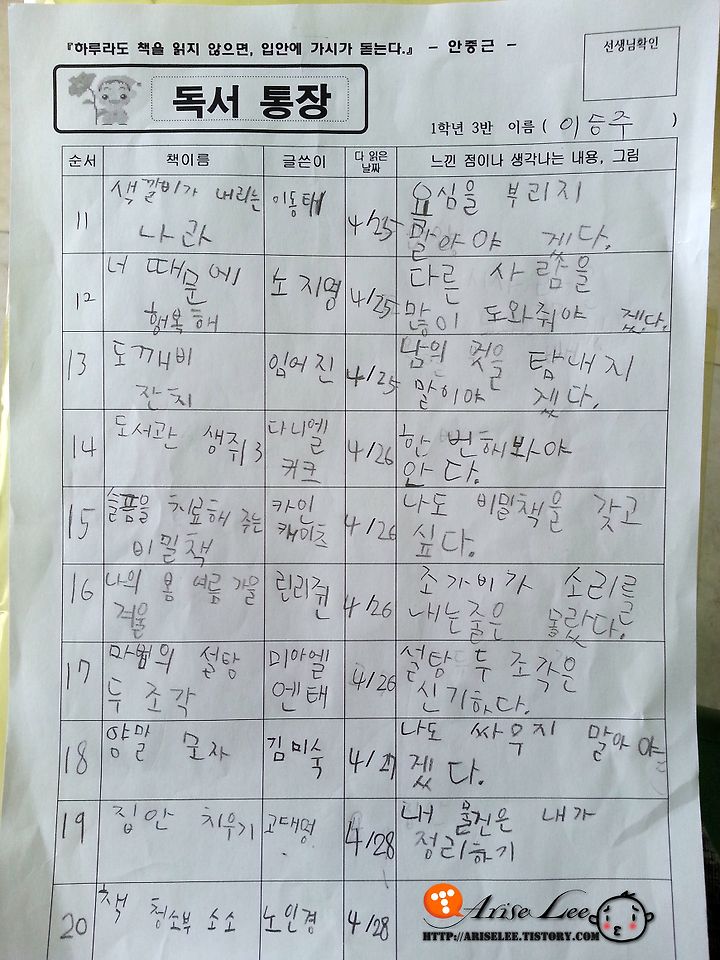 『하루라도 책을 읽지 않으면, 입안에 가시가 돋는다.』 - 안중근 -
선생님확인
독서 통장
1학년 3반 이름 ( 이승주 )
순서 책이름 글쓴이 다 읽은 날짜 느낀 점이나 생각나는 내용, 그림
11 색깔비가 내리는 이동태 4/25 요심을 부리지
나라 말아야 겠다.
12 너 때문에 노지영 4/25 다른 사람을
행복해 많이 도와줘야 겠다.
13 도깨비 임어진 4/25 남의 것을 탐내지
잔치 말이야 겠다.
14 도서관 생쥐3 다니엘 4/26 한 번해봐야
커크 안다.
15 슬픔을 치료해 주는 카인 4/26 나도 비밀책을 갖고
비밀책 케이츠 싶다.
16 나의 봄 여름 가을 린리쥔 4/26 조가비가 소리를
겨울 내는줄은 몰랐다.
17 마법의 설탕 미아엘 4/26 설탕 두 조각은
두 조각 엔태 신기하다.
18 양말 모자 김미숙 4/27 나도 싸우지 말아야
겠다.
19 집안 치우기 고대영 4/28 내 물건은 내가
정리하기
20 책 청소부 소소 노인경 4/28
Arise Lee
HTTP://ARISELEE.TISTORY.COM